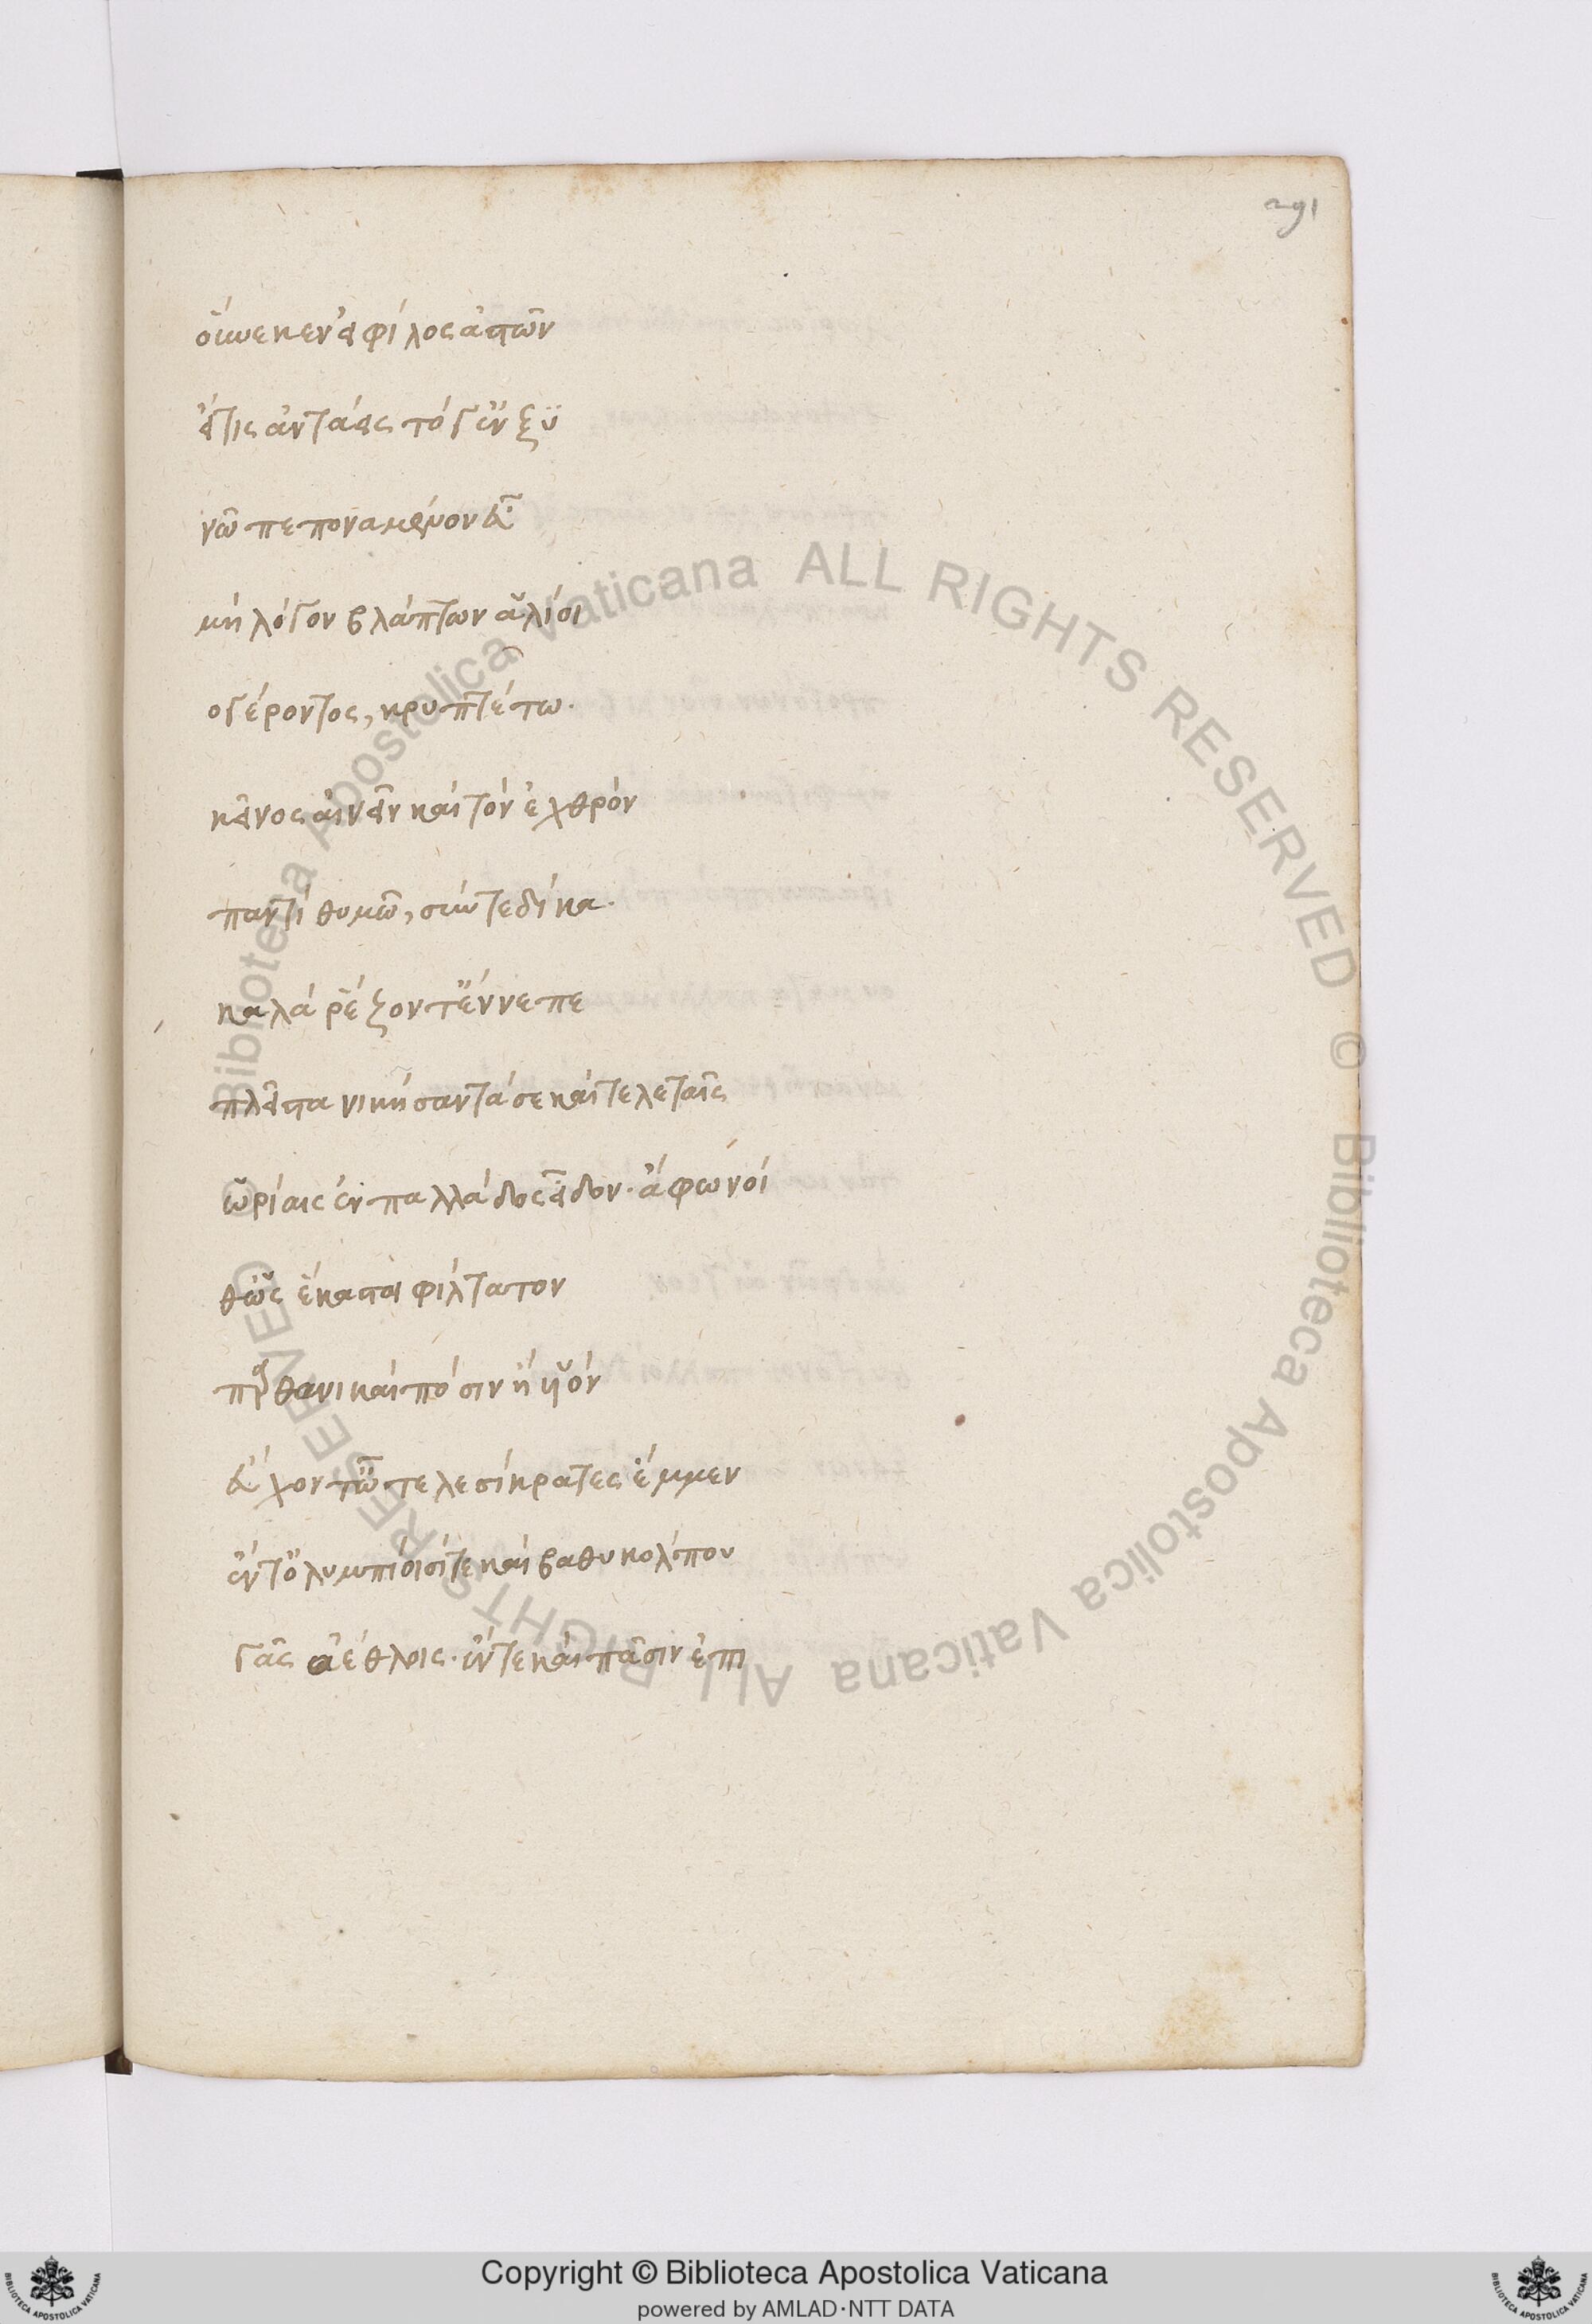 291
οὕνεκεν εἰ φίλος ἀστῶν
εἴτις ἀντάεις τό γ' ἐν ξυ
νῶ πεποναμένον εὖ
μὴ λόγον βλάπτων ἁλίοι
ο γέροντος, κρυπτέτω.
κεῖνος αἰνεῖν καὶ τὸν ἐχθρὸν
παντὶ θυμῶ, σύν τε δίκα.
καλὰ ῥέζοντ' ἔννεπε
πλεῖστα νικήσαντά σε καὶ τελεταῖς
ὡρίαις ἐν παλλάδος εἶδον. ἄφωνοί
θ' ὡς ἕκασται φίλτατον
παρθενικαὶ πόσιν ἢ υἱὸν
εὔχοντ' ὦ τελεσίκρατες ἔμμεν
ἔν τ' ὀλυμπίοισί τε καὶ βαθυκόλπου
γᾶς ἀέθλοις. ἔν τε καὶ πᾶσιν ἐπι
Biblioteca Apostolica Vaticana ALL RIGHTS RESERVED ©
Biblioteca Apostolica Vaticana ALL RIGHTS RESERVED ©
Copyright © Biblioteca Apostolica Vaticana
powered by AMLAD·NTT DATA